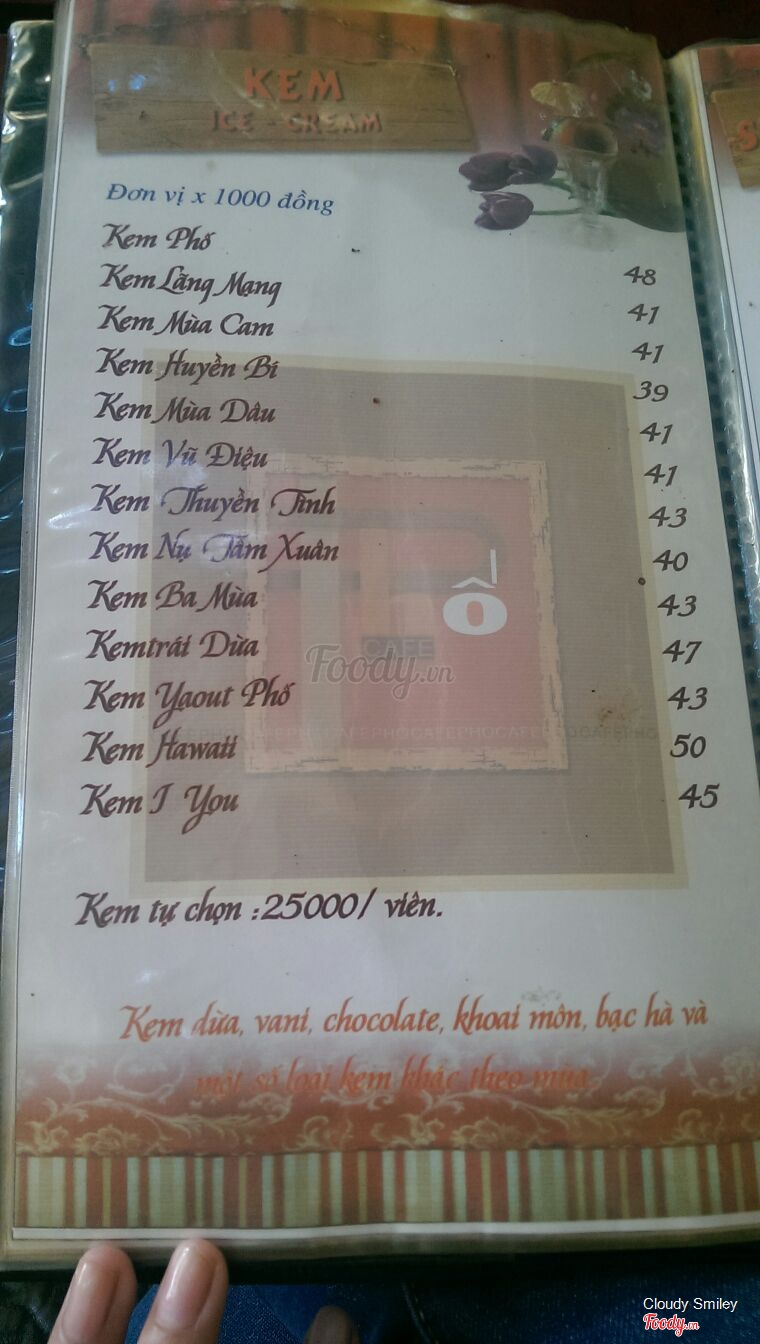 KEM
ICE - CREAM
Đơn vị x 1000 đồng
Kem Phố 48
Kem Lãng Mạng 41
Kem Mùa Cam 41
Kem Huyền Bí 39
Kem Mùa Dâu 41
Kem Vũ Điệu 41
Kem Thuyền Tình 43
Kem Nụ Tầm Xuân 40
Kem Ba Mùa 43
Kemtrái Dừa 47
Kem Yaout Phố 43
Kem Hawaii 50
Kem I You 45
Kem tự chọn :25000/ viên.
Kem dừa, vani, chocolate, khoai môn, bạc hà và
một số loại kem khác theo mùa.
CAFE
Foody.vn
Cloudy Smiley
Foody.vn